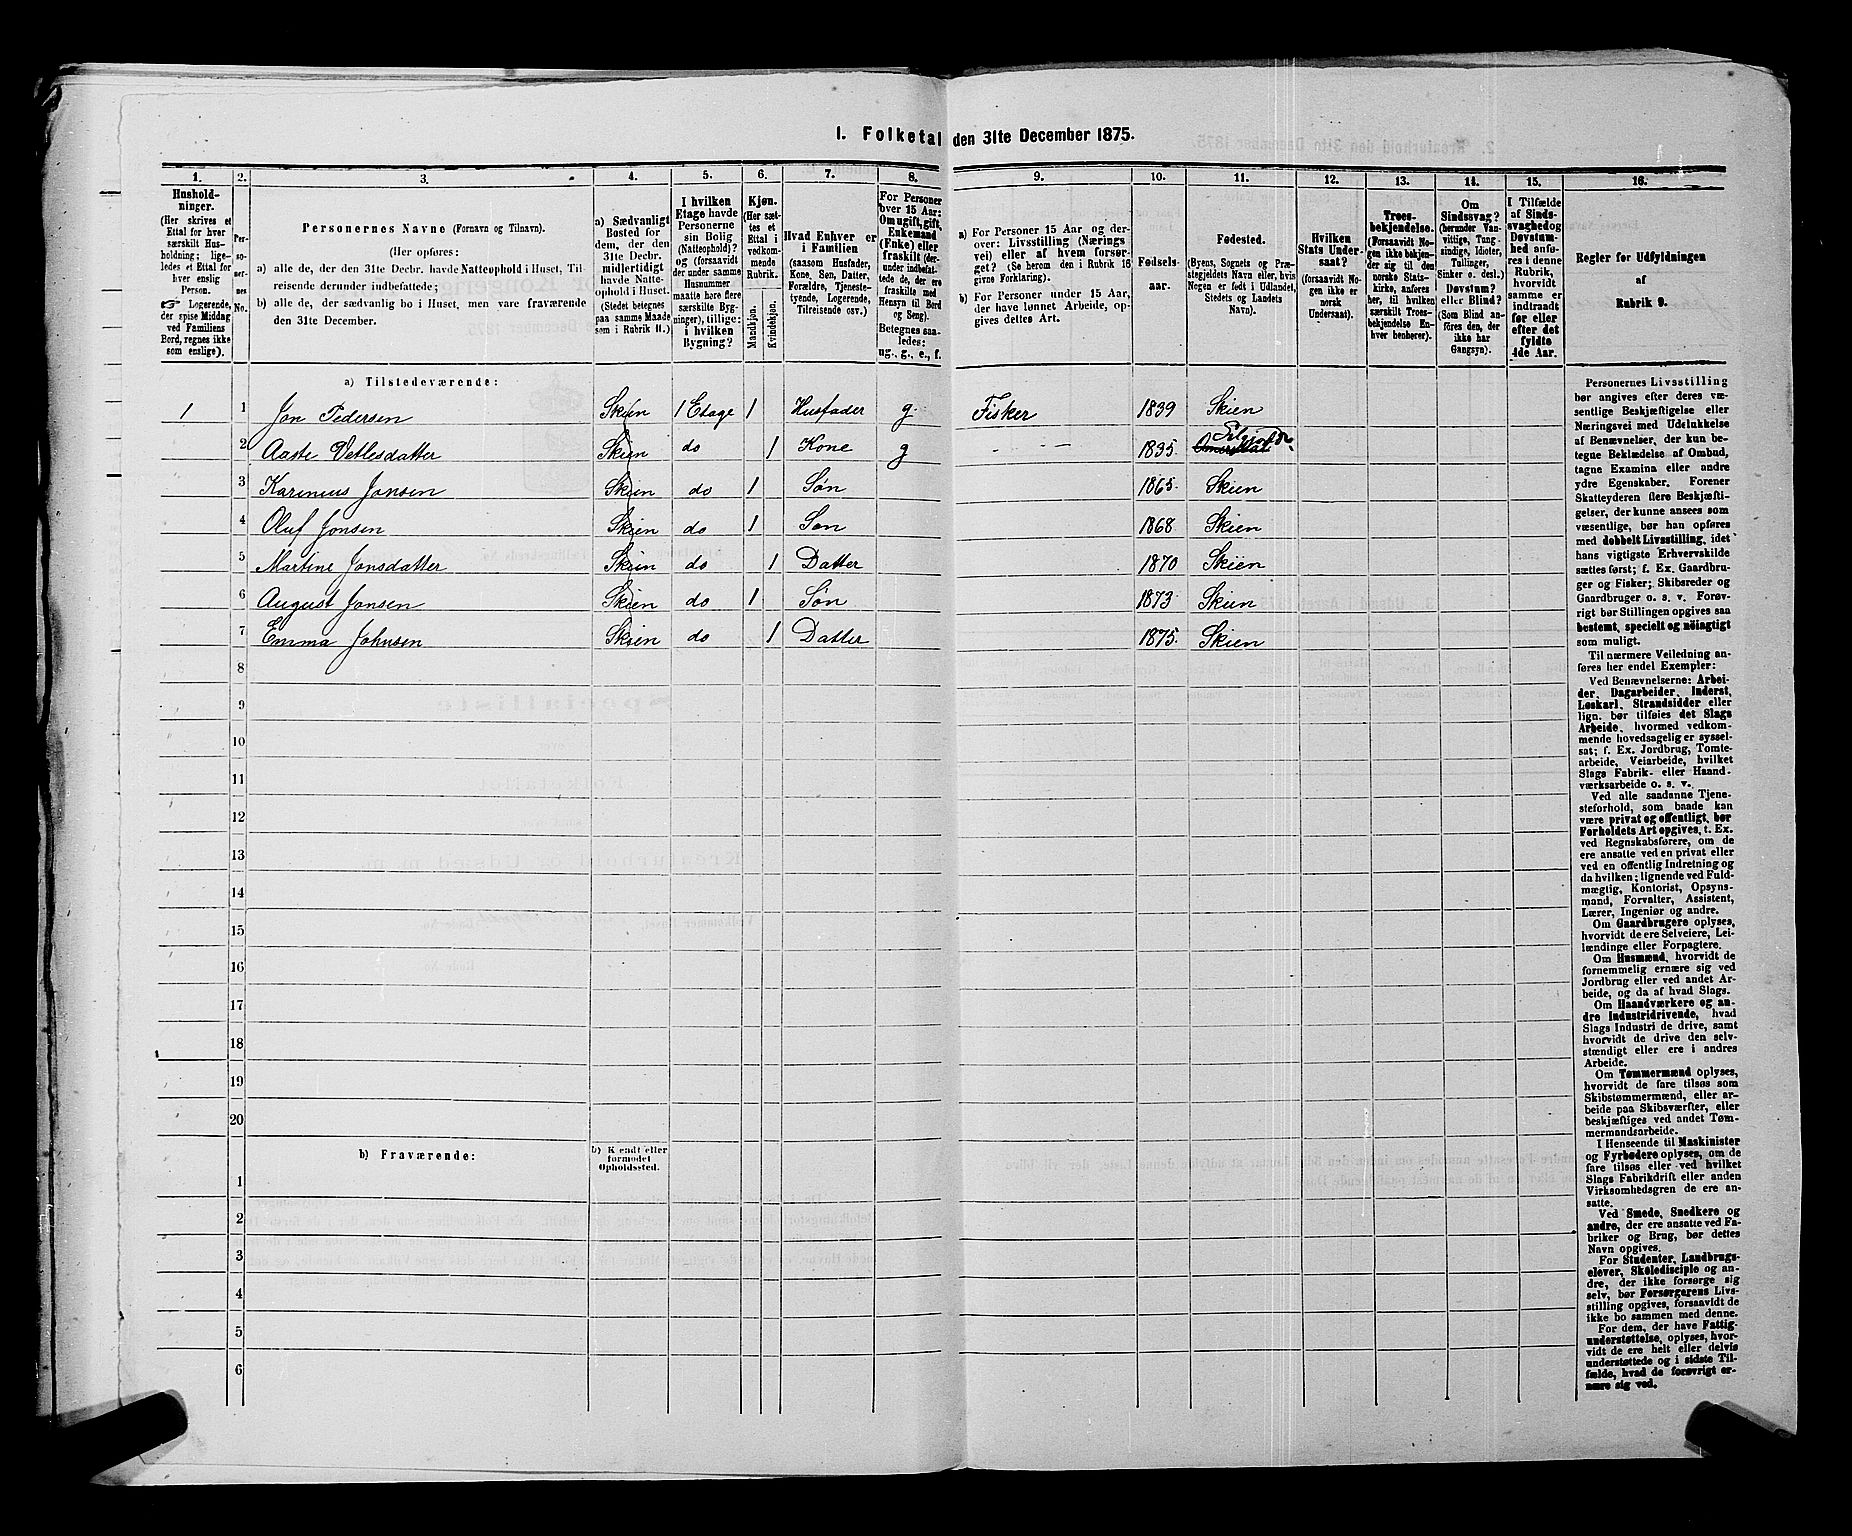 1. Folketal den 31te December 1875.
1. 2. 3. 4. 5. 6. 7. 8. 9. 10. 11. 12. 13. 14. 15. 16.
Hushold-
ninger.
(Her skrives et
Ettal for hver
særskilt Hus-
holdning; lige-
ledes et Ettal for
hver enslig
Person.
☞ Logerende,
der spise Middag
ved Familiens
Bord, regnes ikke
som enslige).
Per-
so-
ner-
nes
No.
Personernes Navne (Fornavn og Tilnavn).
(Her opføres:
a) alle de, der den 31te Decbr. havde Natteophold i Huset, Til-
reisende derunder indbefattede;
b) alle de, der sædvanlig bo i Huset, men vare fraværende
den 31te December.
a) Sædvanligt
Bosted for
dem, der den
31te Decbr.
midlertidigt
havde Natte-
ophold i Huset.
(Stedet betegnes
paa samme Maade
som i Rubrik 11.)
I hvilken
Etage havde
Personerne
sin Bolig
(Natteophold)?
og (forsaavidt
der under samme
Husnummer
maatte høre flere
særskilte Byg-
ninger), tillige:
i hvilken
Bygning?
Kjøn.
(Her sæt-
tes et
Ettal i
vedkom-
mende
Rubrik.
Mandkjøn.
Kvindekjøn.
Hvad Enhver er
i Familien
(saasom Husfader,
Kone, Søn, Datter,
Forældre, Tjeneste-
tyende, Logerende,
Tilreisende osv.)
For Personer
over 15 Aar:
Om ugift, gift,
Enkemand
(Enke) eller
fraskilt (der-
under indbefat-
tede de, der ere
fraskilte med
Hensyn til Bord
og Seng).
Betegnes saa-
ledes:
ug., g., e., f.
a) For Personer 15 Aar og der-
over: Livsstilling (Nærings-
vei) eller af hvem forsør-
get? (Se herom den i Rubrik 16
givne Forklaring).
b) For Personer under 15 Aar,
der have lønnet Arbeide, op-
gives dettes Art.
Fødsels-
aar.
Fødested.
(Byens, Sognets og Præ-
stegjeldets Navn eller, hvis
Nogen er født i Udlandet,
Stedets og Landets
Navn).
Hvilken
Stats Under-
saat?
(forsaavidt No-
gen ikke er
norsk
Undersaat).
Troes-
bekjendelse.
(Forsaavidt No-
gen ikke bekjen-
der sig til den
norske Stats-
kirke, anføres
her, til hvilken
særskilt Troes-
bekjendelse En-
hver henhører).
Om
Sindssvag?
(herunder Van-
vittige, Tung-
sindige, Idioter,
Tullinger,
Sinker o. desl.)
Døvstum?
eller Blind?
(Som Blind an-
føres den, der
ikke har
Gangsyn).
I Tilfælde
af Sinds-
svaghed og
Døvstum-
hed anfø-
res i denne
Rubrik,
hvorvidt
samme er
indtraadt
før eller
efter det
fyldte
4de Aar.
Regler for Udfyldningen
af
Rubrik 9.
a) Tilstedeværende:
1 1 Jon Pedersen Skien 1 Etage 1 Husfader g. Fisker 1839 Skien
2 Aaste Vetlesdatter Skien do 1 Kone g - - 1835. Selj
3 Karinius Jonsen Skien do 1 Søn 1865. Skien
4 Oluf Jonsen Skien do 1 Søn 1868 Skien
5 Martine Jonsdatter Skien do 1 Datter 1870 Skien
6 August Jonsen Skien do 1 Søn 1873 Skien
7 Emma Johnsen Skien do 1 Datter 1875. Skien
8
9
10
11
12
13
14
15
16
17
18
19
20
b) Fraværende:
b) Kjendt eller
formodet
Opholdssted.
1
2
3
4
5
6
Personernes Livsstilling
bør angives efter deres væ-
sentlige Beskjæftigelse eller
Næringsvei med Udelukkelse
af Benævnelser, der kun be-
tegne Beklædelse af Ombud,
tagne Examina eller andre
ydre Egenskaber. Forener
Skatteyderen flere Beskjæfti-
gelser, der kunne ansees som
væsentlige, bør han opføres
med dobbelt Livsstilling, idet
hans vigtigste Erhvervskilde
sættes først; f. Ex. Gaardbru-
ger og Fisker; Skibsreder og
Gaardbruger o. s. v. Forøv-
rigt bør Stillingen opgives saa
bestemt, specielt og nøiagtigt
som muligt.
Til nærmere Veiledning an-
føres her endel Exempler:
Ved Benævnelserne: Arbei-
der, Dagarbeider, Inderst,
Løskarl, Strandsidder eller
lign. bør tilføies det Slags
Arbeide, hvormed vedkom-
mende hovedsagelig er syssel-
sat; f. Ex. Jordbrug, Tomte-
arbeide, Veiarbeide, hvilket
Slags Fabrik- eller Haand-
værksarbeide o. s. v.
Ved alle saadanne Tjene-
steforhold, som baade kan
være privat og offentligt, bør
Forholdets Art opgives, t. Ex.
ved Regnskabsførere, om de
ere ansatte ved en privat eller
ved en offentlig Indretning og
da hvilken; lignende ved Fuld-
mægtig, Kontorist, Opsyns-
mand, Forvalter, Assistent,
Lærer, Ingeniør og andre.
Om Gaardbrugere oplyses,
hvorvidt de ere Selveiere, Lei-
lændinge eller Forpagtere.
Om Husmænd, hvorvidt de
fornemmelig ernære sig ved
Jordbrug eller ved andet Ar-
beide, og da af hvad Slags.
Om Haandværkere og an-
dre Industridrivende, hvad
Slags Industri de drive, samt
hvorvidt de drive den selv-
stændigt eller ere i andres
Arbeide.
Om Tømmermænd oplyses,
hvorvidt de fare tilsøs som
Skibstømmermænd, eller ar-
beide paa Skibsværfter, eller
beskjæftiges ved andet Tøm-
mermandsarbeide.
I Henseende til Maskinister
og Fyrbødere oplyses, om de
fare tilsøs eller ved hvilket
Slags Fabrikdrift eller anden
Virksomhedsgren de ere an-
satte.
Ved Smede, Snedkere og
andre, der ere ansatte ved Fa-
briker og Brug, bør dettes
Navn opgives.
For Studenter, Landbrugs-
elever, Skoledisciple og an-
dre, der ikke forsørge sig
selv, bør Forsørgerens Livs-
stilling opgives, forsaavidt de
ikke bo sammen med denne.
For dem, der have Fattig-
understøttelse, oplyses, hvor-
vidt de ere helt eller delvis
understøttede og i sidste Til-
fælde, hvad de forøvrigt er-
nære sig ved.